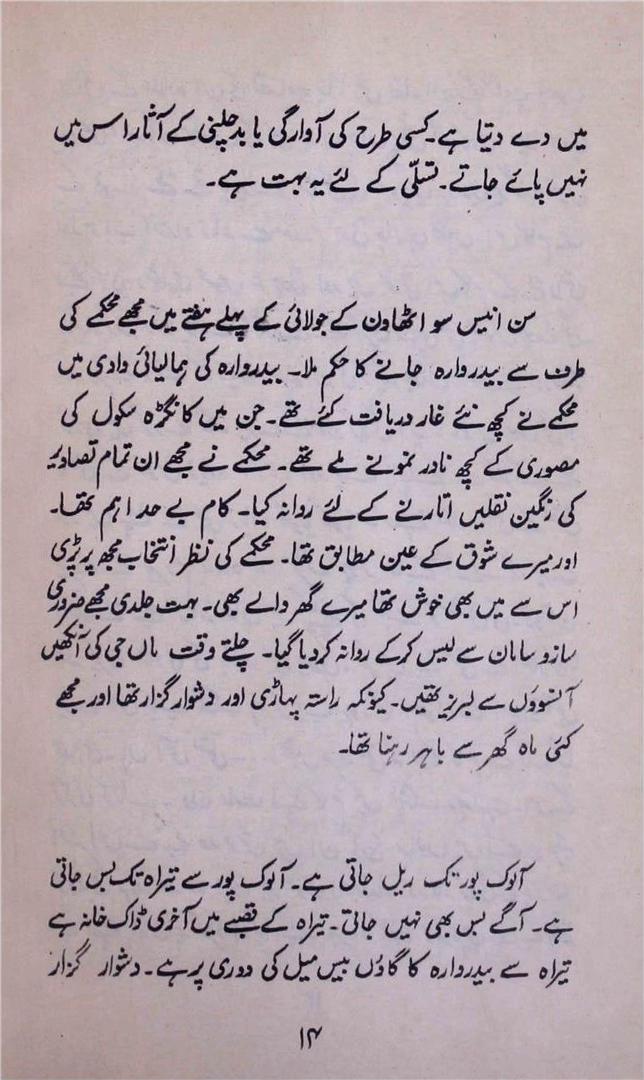 میں دے دیتا ہے۔ کسی طرح کی آوارگی یا بدچلنی کے آثار اس میں
نہیں پائے جاتے۔ تسلّی کے لئے یہ بہت ہے۔
سن انیس سو اٹھاون کے جولائی کے پہلے ہفتے میں مجھے محکمے کی
طرف سے بیدروارہ جانے کا حکم ملا۔ بیدروارہ کی ہمالیائی وادی میں
محکمے نے کچھ نئے غار دریافت کئے تھے۔ جن میں کانگڑہ سکول کی
مصوری کے کچھ نادر نمونے ملے تھے۔ محکمے نے مجھے ان تمام تصاویر
کی رنگین نقلیں اتارنے کے لئے روانہ کیا۔ کام بے حد اہم تھا۔
اور میرے شوق کے عین مطابق تھا۔ محکمے کی نظر انتخاب مجھ پر پڑی
اس سے میں بھی خوش تھا میرے گھر والے بھی۔ بہت جلدی مجھے ضروری
سازو سامان سے لیس کرکے روانہ کردیا گیا۔ چلتے وقت ماں جی کی آنکھیں
آنسووں سے لبریز تھیں۔ کیونکہ راستہ پہاڑی اور دشوار گزار تھا اور مجھے
کئی ماہ گھر سے باہر رہنا تھا۔
آلوک پور تک ریل جاتی ہے۔ آلوک پور سے تیراہ تک بس جاتی
ہے۔ آگے بس بھی نہیں جاتی۔ تیراہ کے قصبے میں آخری ڈاک خانہ ہے
تیراہ سے بیدروارہ کا گاؤں بیس میل کی دوری پر ہے۔ دشوار گزار
۱۴